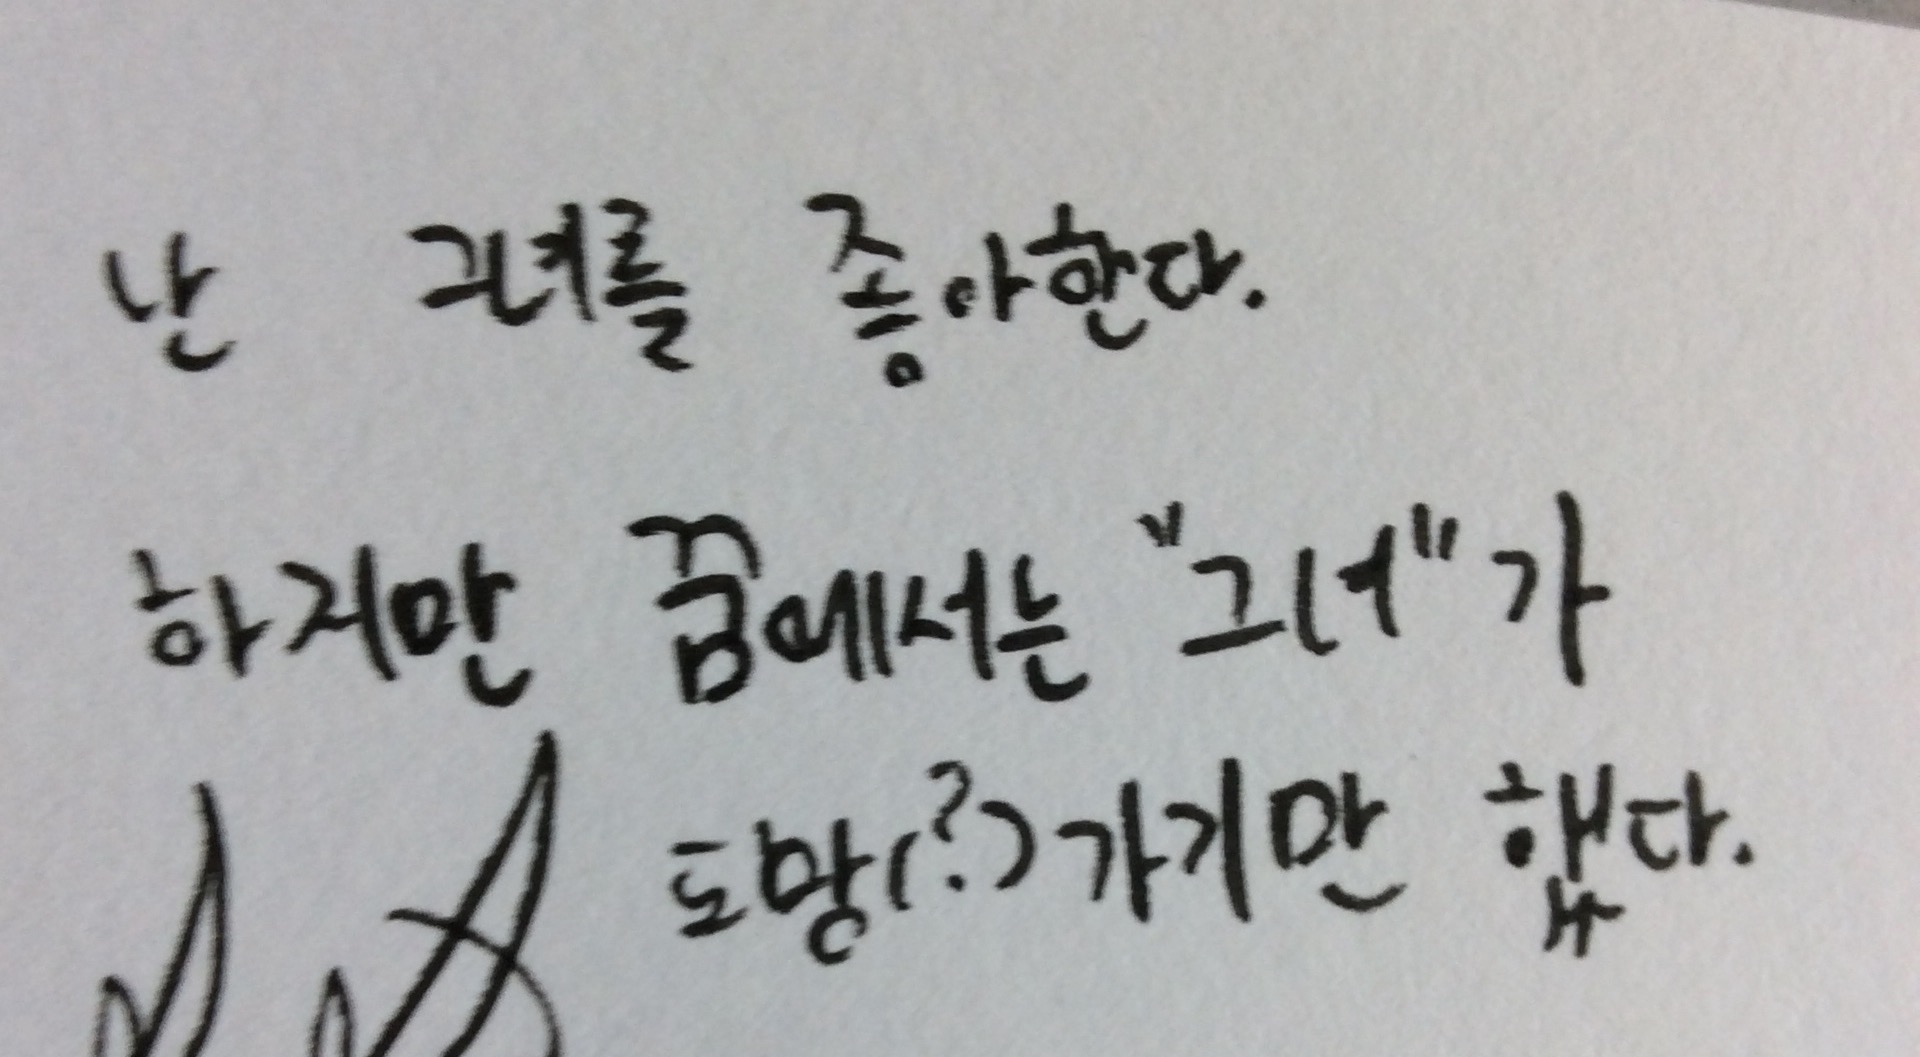 난 그녀를 좋아한다.
하지만 꿈에서는 "그녀"가
도망(?)가기만 했다.